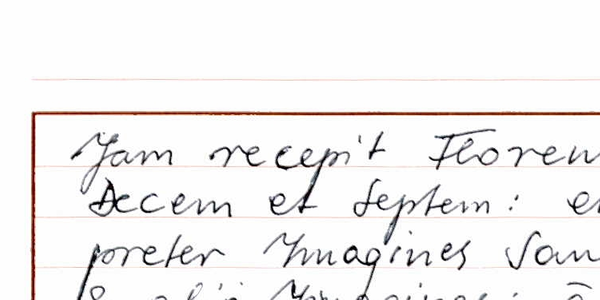 Jam recepit Floren
Decem et Septem: e
preter Imagines San